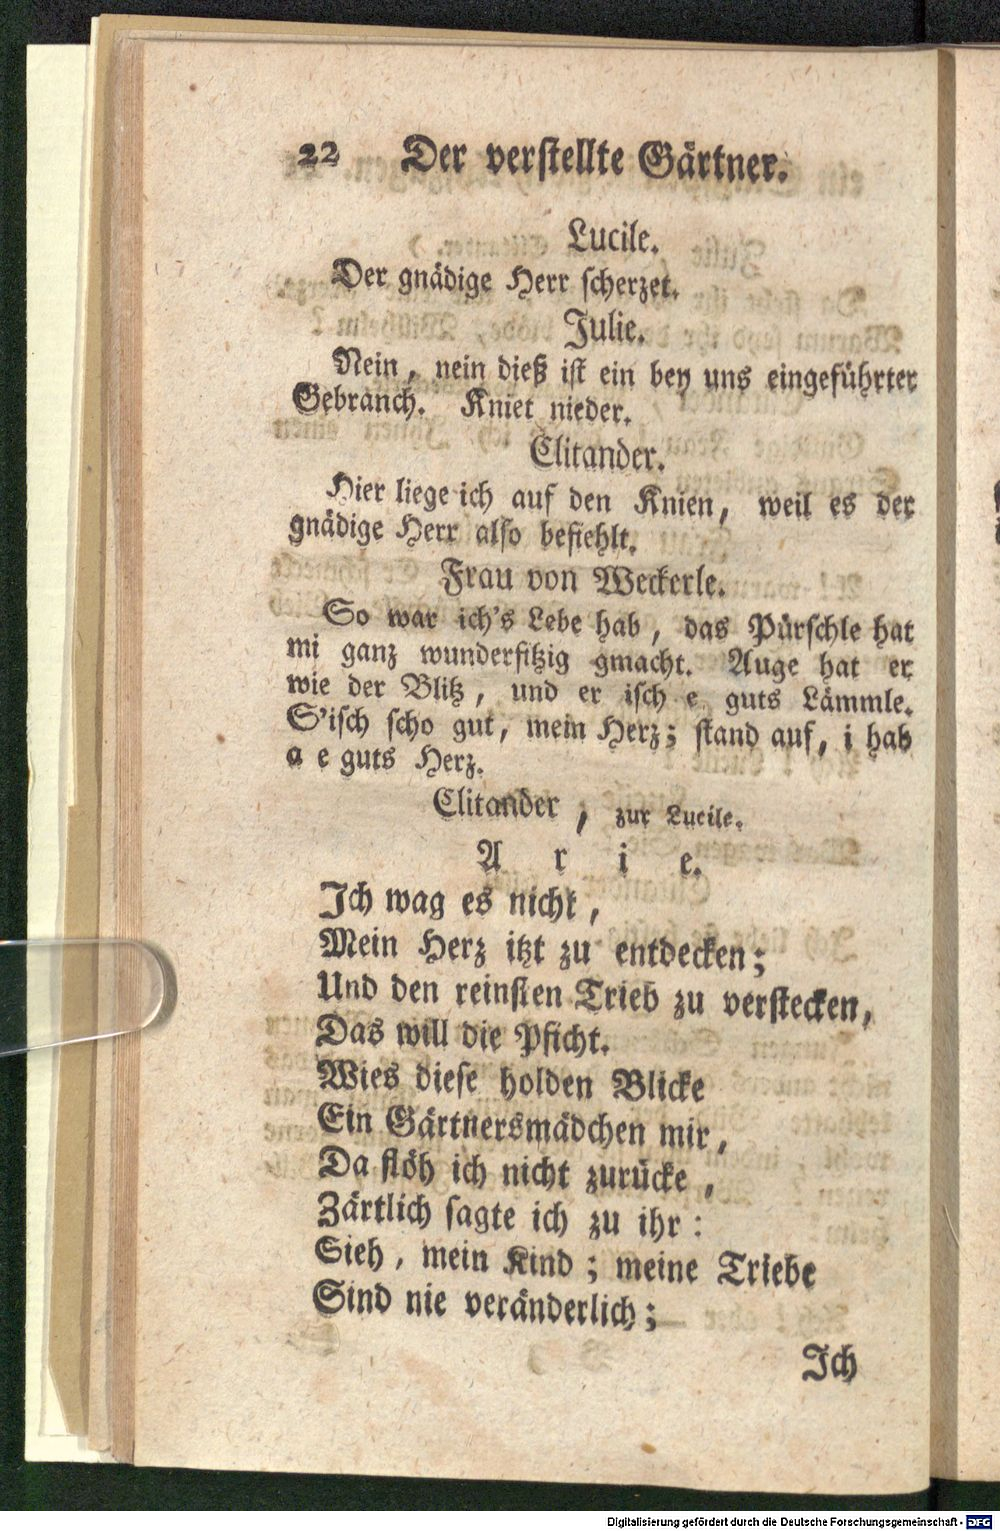 22 Der verstellte Gärtner.
Lucile.
Der gnädige Herr scherzet.
Julie.
Nein, nein dieß ist ein bey uns eingeführter
Gebranch. Kniet nieder.
Clitander.
Hier liege ich auf den Knien, weil es der
gnädige Herr also befiehlt.
Frau von Weckerle.
So war ich's Lebe hab, das Pürschle hat
mi ganz wunderfitzig gmacht. Auge hat er
wie der Blitz, und er isch e guts Lämmle.
S'isch scho gut, mein Herz; stand auf, i hab
a e guts Herz.
Clitander, zur Lucile.
Arie.
Ich wag es nicht,
Mein Herz itzt zu entdecken;
Und den reinsten Trieb zu verstecken,
Das will die Pficht.
Wies diese holden Blicke
Ein Gärtnersmädchen mir,
Da flöh ich nicht zurücke,
Zärtlich sagte ich zu ihr:
Sieh, mein Kind; meine Triebe
Sind nie veränderlich;
Ich
Digitalisierung gefördert durch die Deutsche Forschungsgemeinschaft - DFG